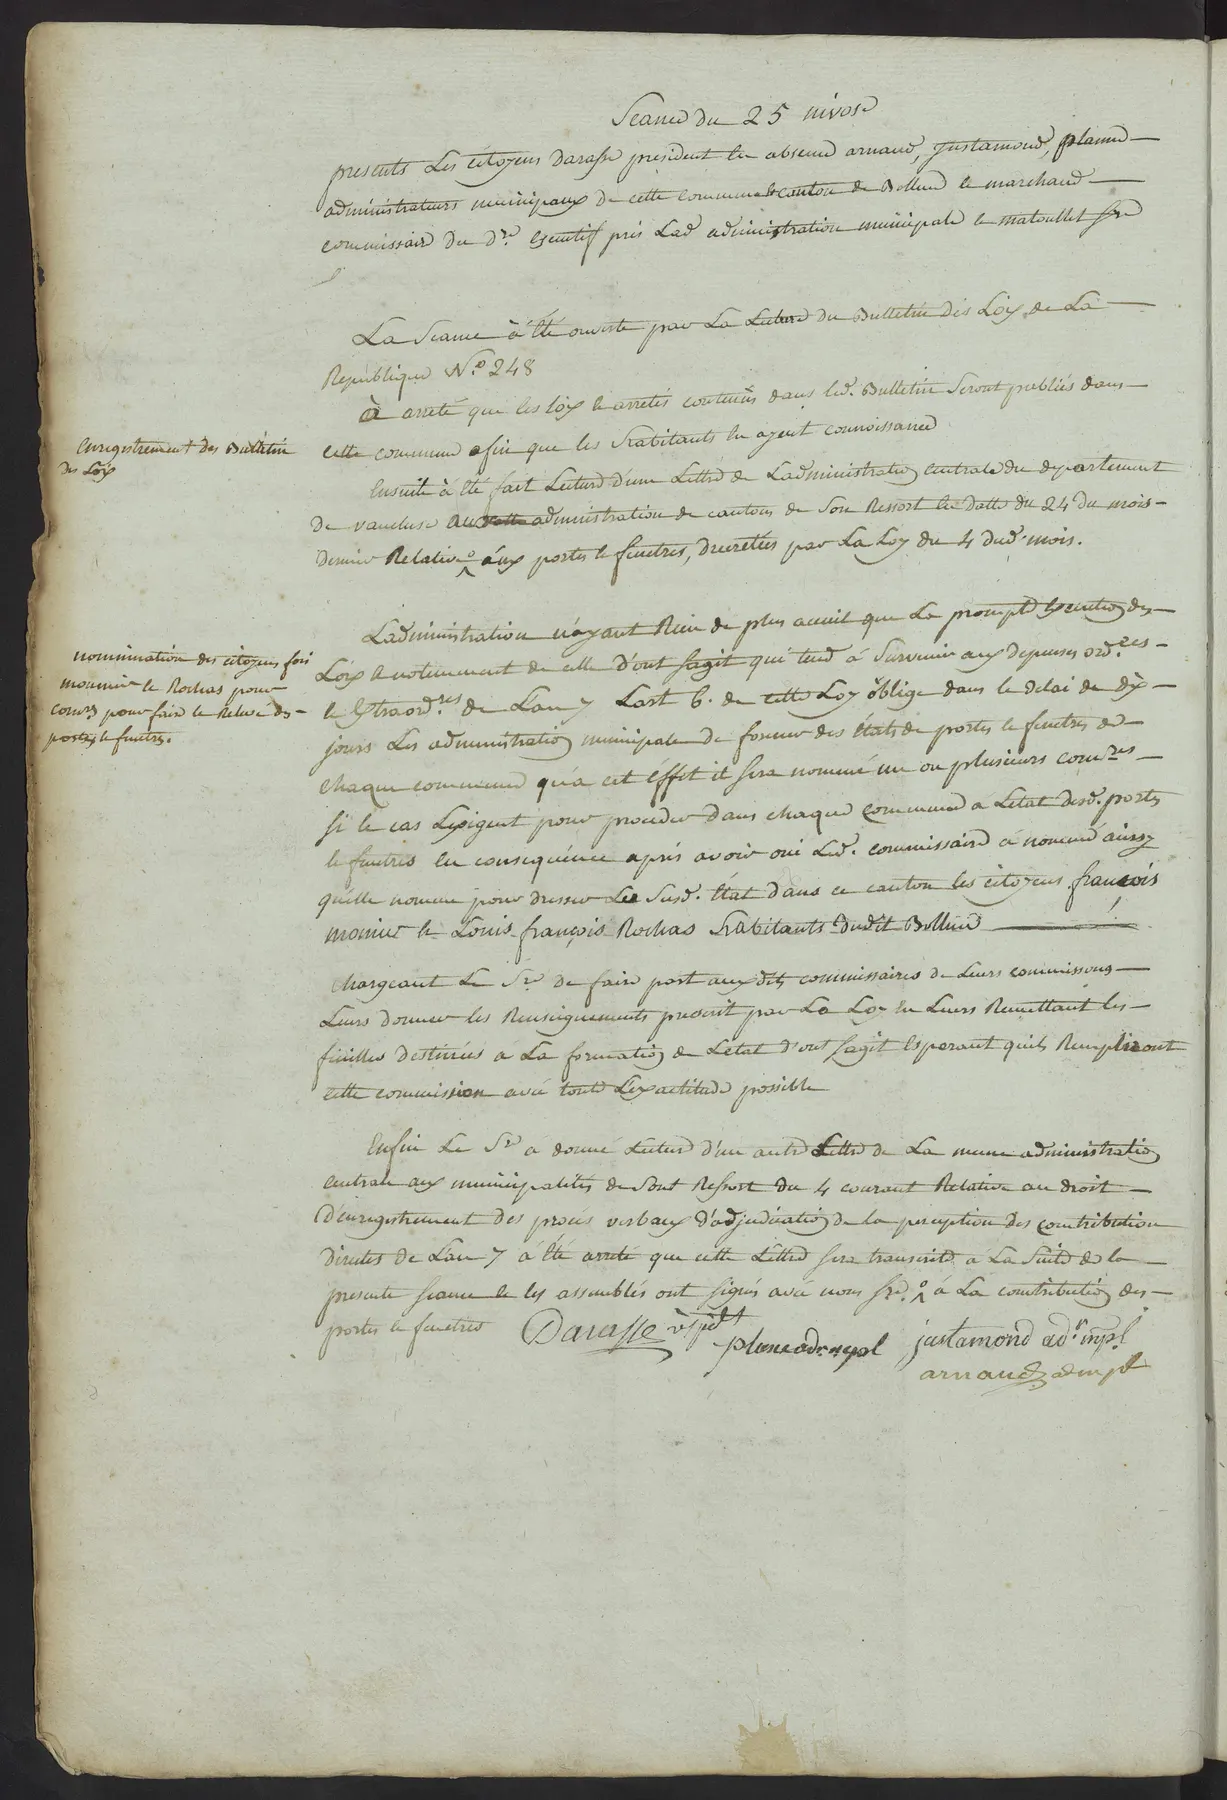 Seance du 25 nivose
presents Les citoyens Darasse president en absence arnaud, Justamond, planne
administrateurs municipaux de cette commune & canton de Bollene le marchand
commissaire du d.re Executif pres Lad administration municipale & matoullet Sre
La Seance à été ouverte par La Lecture du Bulletin dés Loix de La
Republique N.º 248
à arreté que les loix & arretés contenus dans led. Bulletin Seront publiés dans
enregistrement des Bulletin
des Loix
cette commune afin que les habitants en ayent connoissance
Ensuite à été fait Lecture d'une Lettre de L'administration centrale du departement
de vaucluse aux administration de cantons de Son Ressort en datte du 24 du mois
dernier Relative º aux portes & fenetres, decretées par La Loy du 4 dud. mois.
L'administration n'ayant Rien de plus acueil que La prompte Execution des
nomination des citoyens fois
monnier & Rochas pour
com.res pour faire le Relevé des
portes & fenetres.
Loix & notemment de celle d'ont sagit qui tend á Survenir aux depenses ord.res
& Extraord.res de L'an 7 L'art 6. de cette Loy óblige dans le delai de dix
jours Les administration municipale de former des états de portes & fenetres de
chaque commune qu'a cet éffet il sera nommé un ou plusieurs com.res
si le cas L'exigent pour proceder dans chaque commune a L'etat desd. portes
& fenetres en consequence aprés avoir oui Led. commissaire á nommé ainsy
qu'elle nomme pour dresser Le Susd. État dans ce canton les citoyens françois
monier & Louis françois Rochas habitants dudit Bollene
chargeant Le S.re de faire part aux dits commissaires de Leurs commissions
Leurs donner les Renseignements prescrit par La Loy en Leurs Remettant les
feuilles destinées a La formation de L'etat d'ont sagit Esperant quils Rempliront
cette commission avec toute L'exactitude possible
Enfin Le S.re a donné Lecture d'un autre Lettre de La meme administration
centrale aux municipalités de Sont Ressort du 4 courant Relative au droit
d'enregistrement des procés verbaux d'adjudication de la perception des contribution
directes de L'an 7 á été arreté que cette Lettre sera transcrite a La Suite de la
presente Seance & les assemblés ont signés avec nous Sre. º á La contribution des
portes & fenetres
Darasse
plane adr. mpal
justamond ad.r mpl
arnaud admpl